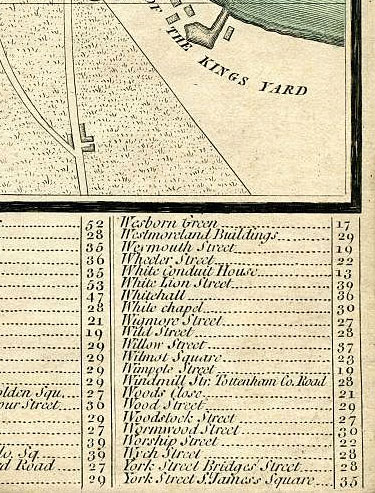 OF THE KINGS YARD
52
28
35
36
35
53
47
28
21
19
29
29
29
29
olden Squ. 27
our Street 36
29
27
39
lo. Sq 39
d Road 27
29
Wesborn Green 17
Westmoreland Buildings 29
Weymouth Street 19
Wheeler Street 22
White Conduit House 13
White Lion Street 39
Whitehall 36
White chapel 30
Wigmore Street 27
Wild Street 28
Willow Street 37
Wilmot Square 23
Wimpole Street 19
Windmill Str. Tottenham Co. Road 28
Woods Close 21
Wood Street 29
Woodstock Street 27
Wormwood Street 30
Worship Street 22
Wych Street 28
York Street Bridges Street 28
York Street S. Jamess Square 35